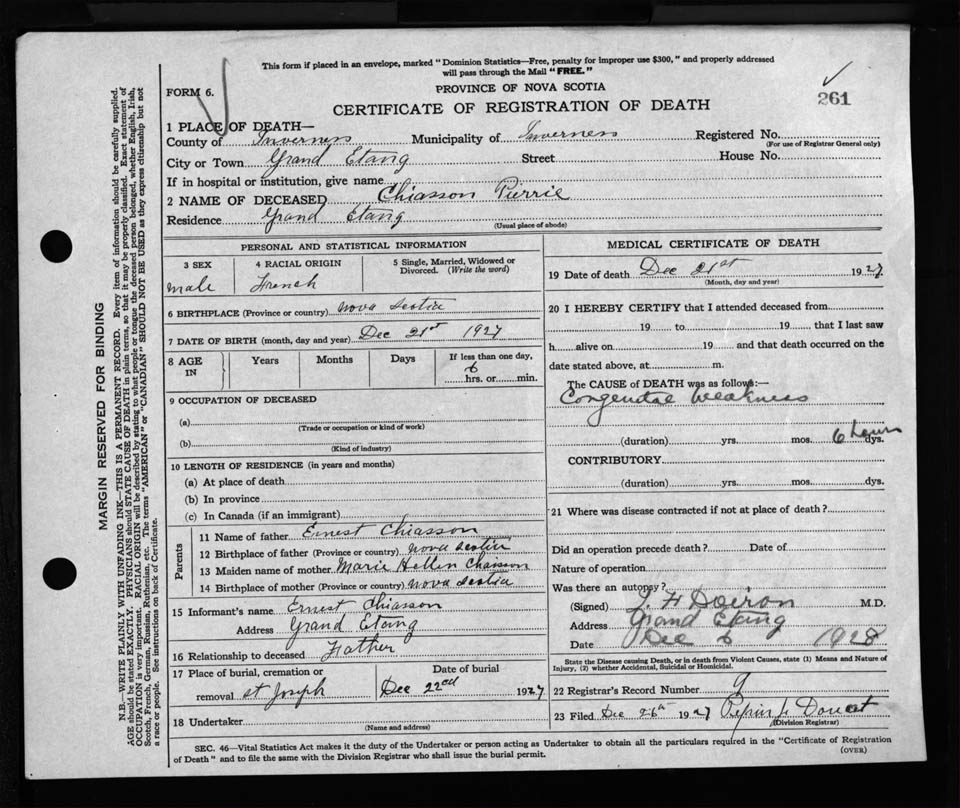 This form if placed in an envelope, marked "Dominion Statistics—Free, penalty for improper use $300," and properly addressed
will pass through the Mail "FREE."
FORM 6.
PROVINCE OF NOVA SCOTIA
CERTIFICATE OF REGISTRATION OF DEATH
261
1 PLACE OF DEATH—
County of Inverness Municipality of Inverness Registered No.
(For use of Registrar General only)
City or Town Grand Etang Street House No.
If in hospital or institution, give name
2 NAME OF DECEASED Chiasson Pierrie
Residence Grand Etang
(Usual place of abode)
PERSONAL AND STATISTICAL INFORMATION
3 SEX 4 RACIAL ORIGIN 5 Single, Married, Widowed or
Divorced. (Write the word)
male French
6 BIRTHPLACE (Province or country) Nova Scotia
7 DATE OF BIRTH (month, day and year) Dec 21st 1927
8 AGE IN Years Months Days If less than one day,
6 hrs. or min.
9 OCCUPATION OF DECEASED
(a)
(Trade or occupation or kind of work)
(b)
(Kind of industry)
10 LENGTH OF RESIDENCE (in years and months)
(a) At place of death
(b) In province
(c) In Canada (if an immigrant)
Parents
11 Name of father Ernest Chiasson
12 Birthplace of father (Province or country) Nova Scotia
13 Maiden name of mother Marie Hellen Chiasson
14 Birthplace of mother (Province or country) Nova Scotia
15 Informant's name Ernest Chiasson
Address Grand Etang
16 Relationship to deceased Father
17 Place of burial, cremation or Date of burial
removal St Joseph Dec 22nd 1927
18 Undertaker
(Name and address)
MEDICAL CERTIFICATE OF DEATH
19 Date of death Dec 21st 1927
(Month, day and year)
20 I HEREBY CERTIFY that I attended deceased from
19 to 19 that I last saw
h alive on 19 and that death occurred on the
date stated above, at m.
The CAUSE of DEATH was as follows:—
Congenital Weakness
(duration) yrs. mos. 6 hours dys.
CONTRIBUTORY
(duration) yrs. mos. dys.
21 Where was disease contracted if not at place of death?
Did an operation precede death? Date of
Nature of operation
Was there an autopsy?
(Signed) L F Doiron M.D.
Address Grand Etang
Date Dec 6 1928
State the Disease causing Death, or in death from Violent Causes, state (1) Means and Nature of
Injury, (2) whether Accidental, Suicidal or Homicidal.
22 Registrar's Record Number 9
23 Filed Dec 26th 1927
(Division Registrar)
SEC. 46—Vital Statistics Act makes it the duty of the Undertaker or person acting as Undertaker to obtain all the particulars required in the "Certificate of Registration
of Death" and to file the same with the Division Registrar who shall issue the burial permit.
(OVER)
MARGIN RESERVED FOR BINDING
N.B.—WRITE PLAINLY WITH UNFADING INK—THIS IS A PERMANENT RECORD. Every item of information should be carefully supplied.
AGE should be stated EXACTLY. PHYSICIANS should STATE CAUSE OF DEATH in plain terms, so that it may be properly classified. Exact statement of
OCCUPATION is very important. RACIAL ORIGIN will be described by stating to what people or tongue the deceased person belonged, whether English, Irish,
Scotch, French, German, Russian, Ruthenian, etc. The terms "AMERICAN" or "CANADIAN" SHOULD NOT BE USED as they express citizenship but not
a race or people. See instructions on back of Certificate.